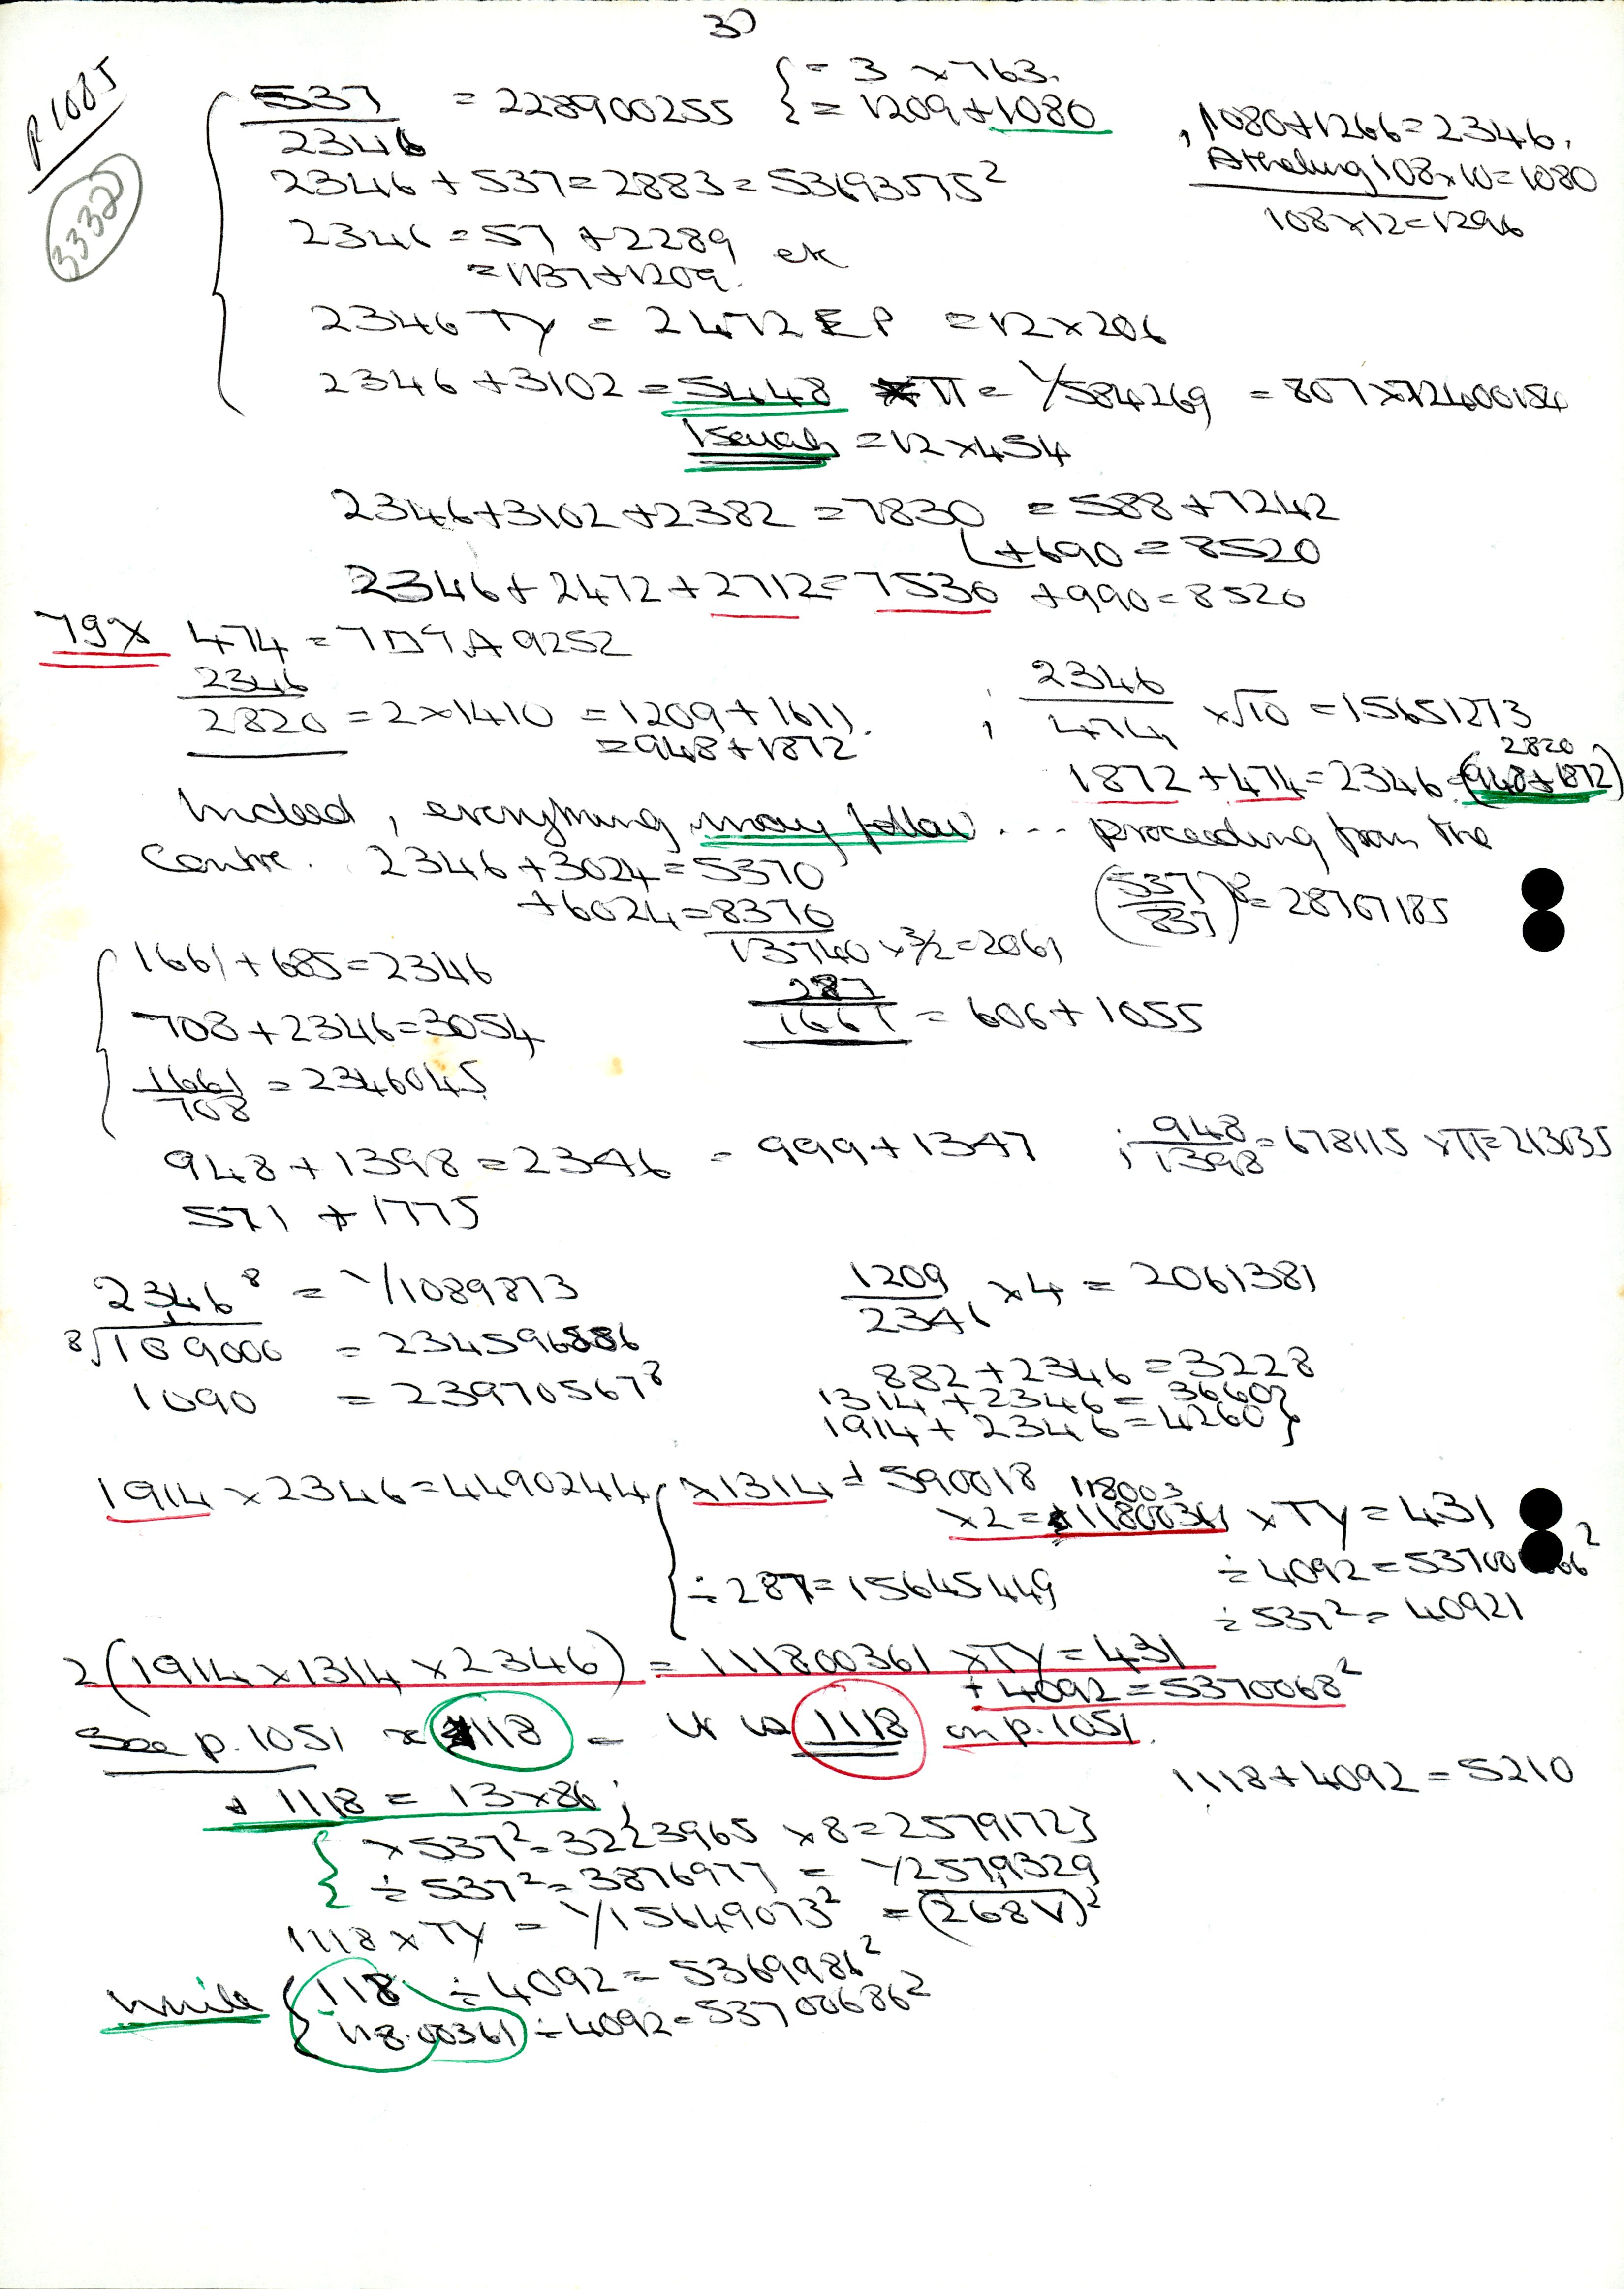 3)
P1085
3332
537/2346 = 228900255 { = 3 × 763.
= 1209+1080
, 1080+1266=2346.
108×10=1080
108×12=1296
2346 + 537 = 2883 = 53693575²
2346 = 57 + 2289 etc
= 1137+1209.
2346 TY = 2472 EP = 12×206
2346 + 3102 = 5448 π = 1/584269 = 807 ×
= 12×454
2346+3102+2382 = 7830 = 588+7242
+690 = 8520
2346+2472+2712=7530 +990=8520
79× 474 =
2346
2820 = 2×1410 = 1209+1611.
= 948+1872
; 2346/474 ×√10 = 15651273
1872 + 474 = 2346 (948+1872)
2820
Indeed, everything may follow ... proceeding from the
Centre. 2346+3024=5370
+6024=8370
13740 ×3/2=2061
(537/837)⁸=28707185
1661+685=2346
708+2346=3054
1661/708 = 2346045
287
1661 = 606+1055
948+1398=2346 = 999+1347
; 948/1398 = 678115 ×π=213035
571 + 1775
2346⁸ = 1/1089873
⁸√109000 = 234596886
1090 = 23970567⁸
1209/2346 ×4 = 2061381
882+2346=3228
1314+2346=3660}
1914+2346=4260}
1914×2346=4490244 { ×1314 = 590018
118003
×2=11800361 ×TY=431
÷4092=53700
÷287=15645449
÷537²=40921
2(1914×1314×2346) = 111800361 ×TY=431
÷4092=5370068²
See p.1051 × 1118 = 1118 on p.1051.
1118+4092=5210
1118 = 13×86;
{ ×537²=3223965 ×8=25791723
÷537²=3876977 = 1/2579329
1118×TY = 1/15649073² = (268√)²
While { 118 ÷4092=5369986²
118.00361÷4092=53700686²